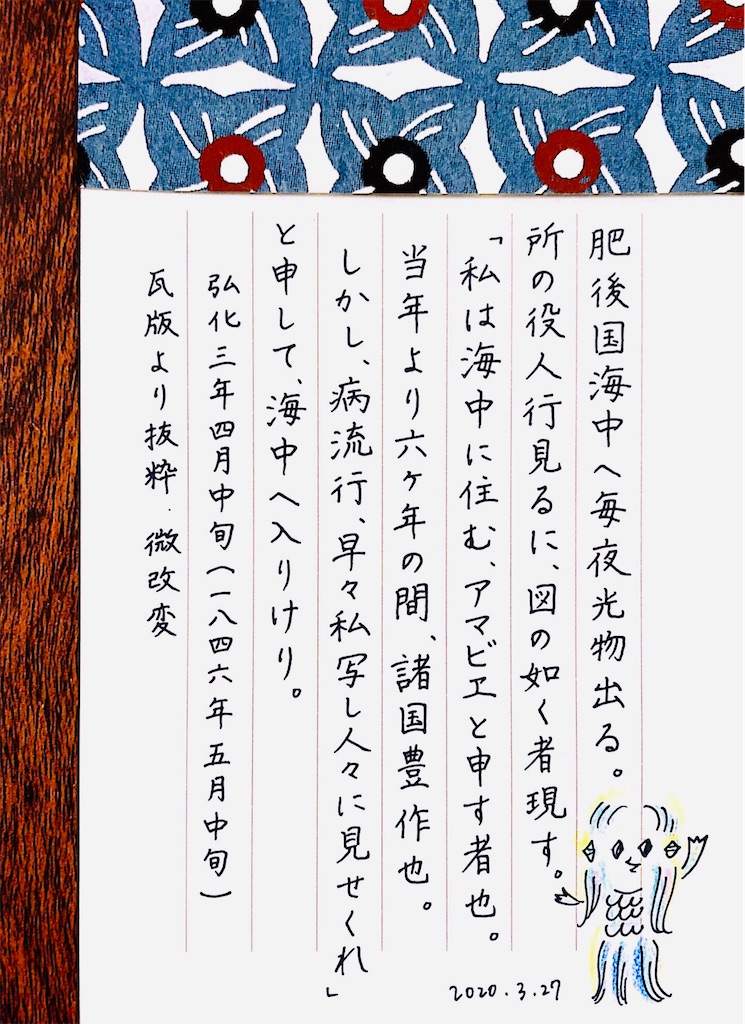 肥後国海中へ毎夜光物出る。
所の役人行見るに、図の如く者現す。
「私は海中に住む、アマビヱと申す者也。
当年より六ヶ年の間、諸国豊作也。
しかし、病流行、早々私写し人々に見せくれ」
と申して、海中へ入りけり。
弘化三年四月中旬(一八四六年五月中旬)
瓦版より抜粋・微改変
2020.3.27